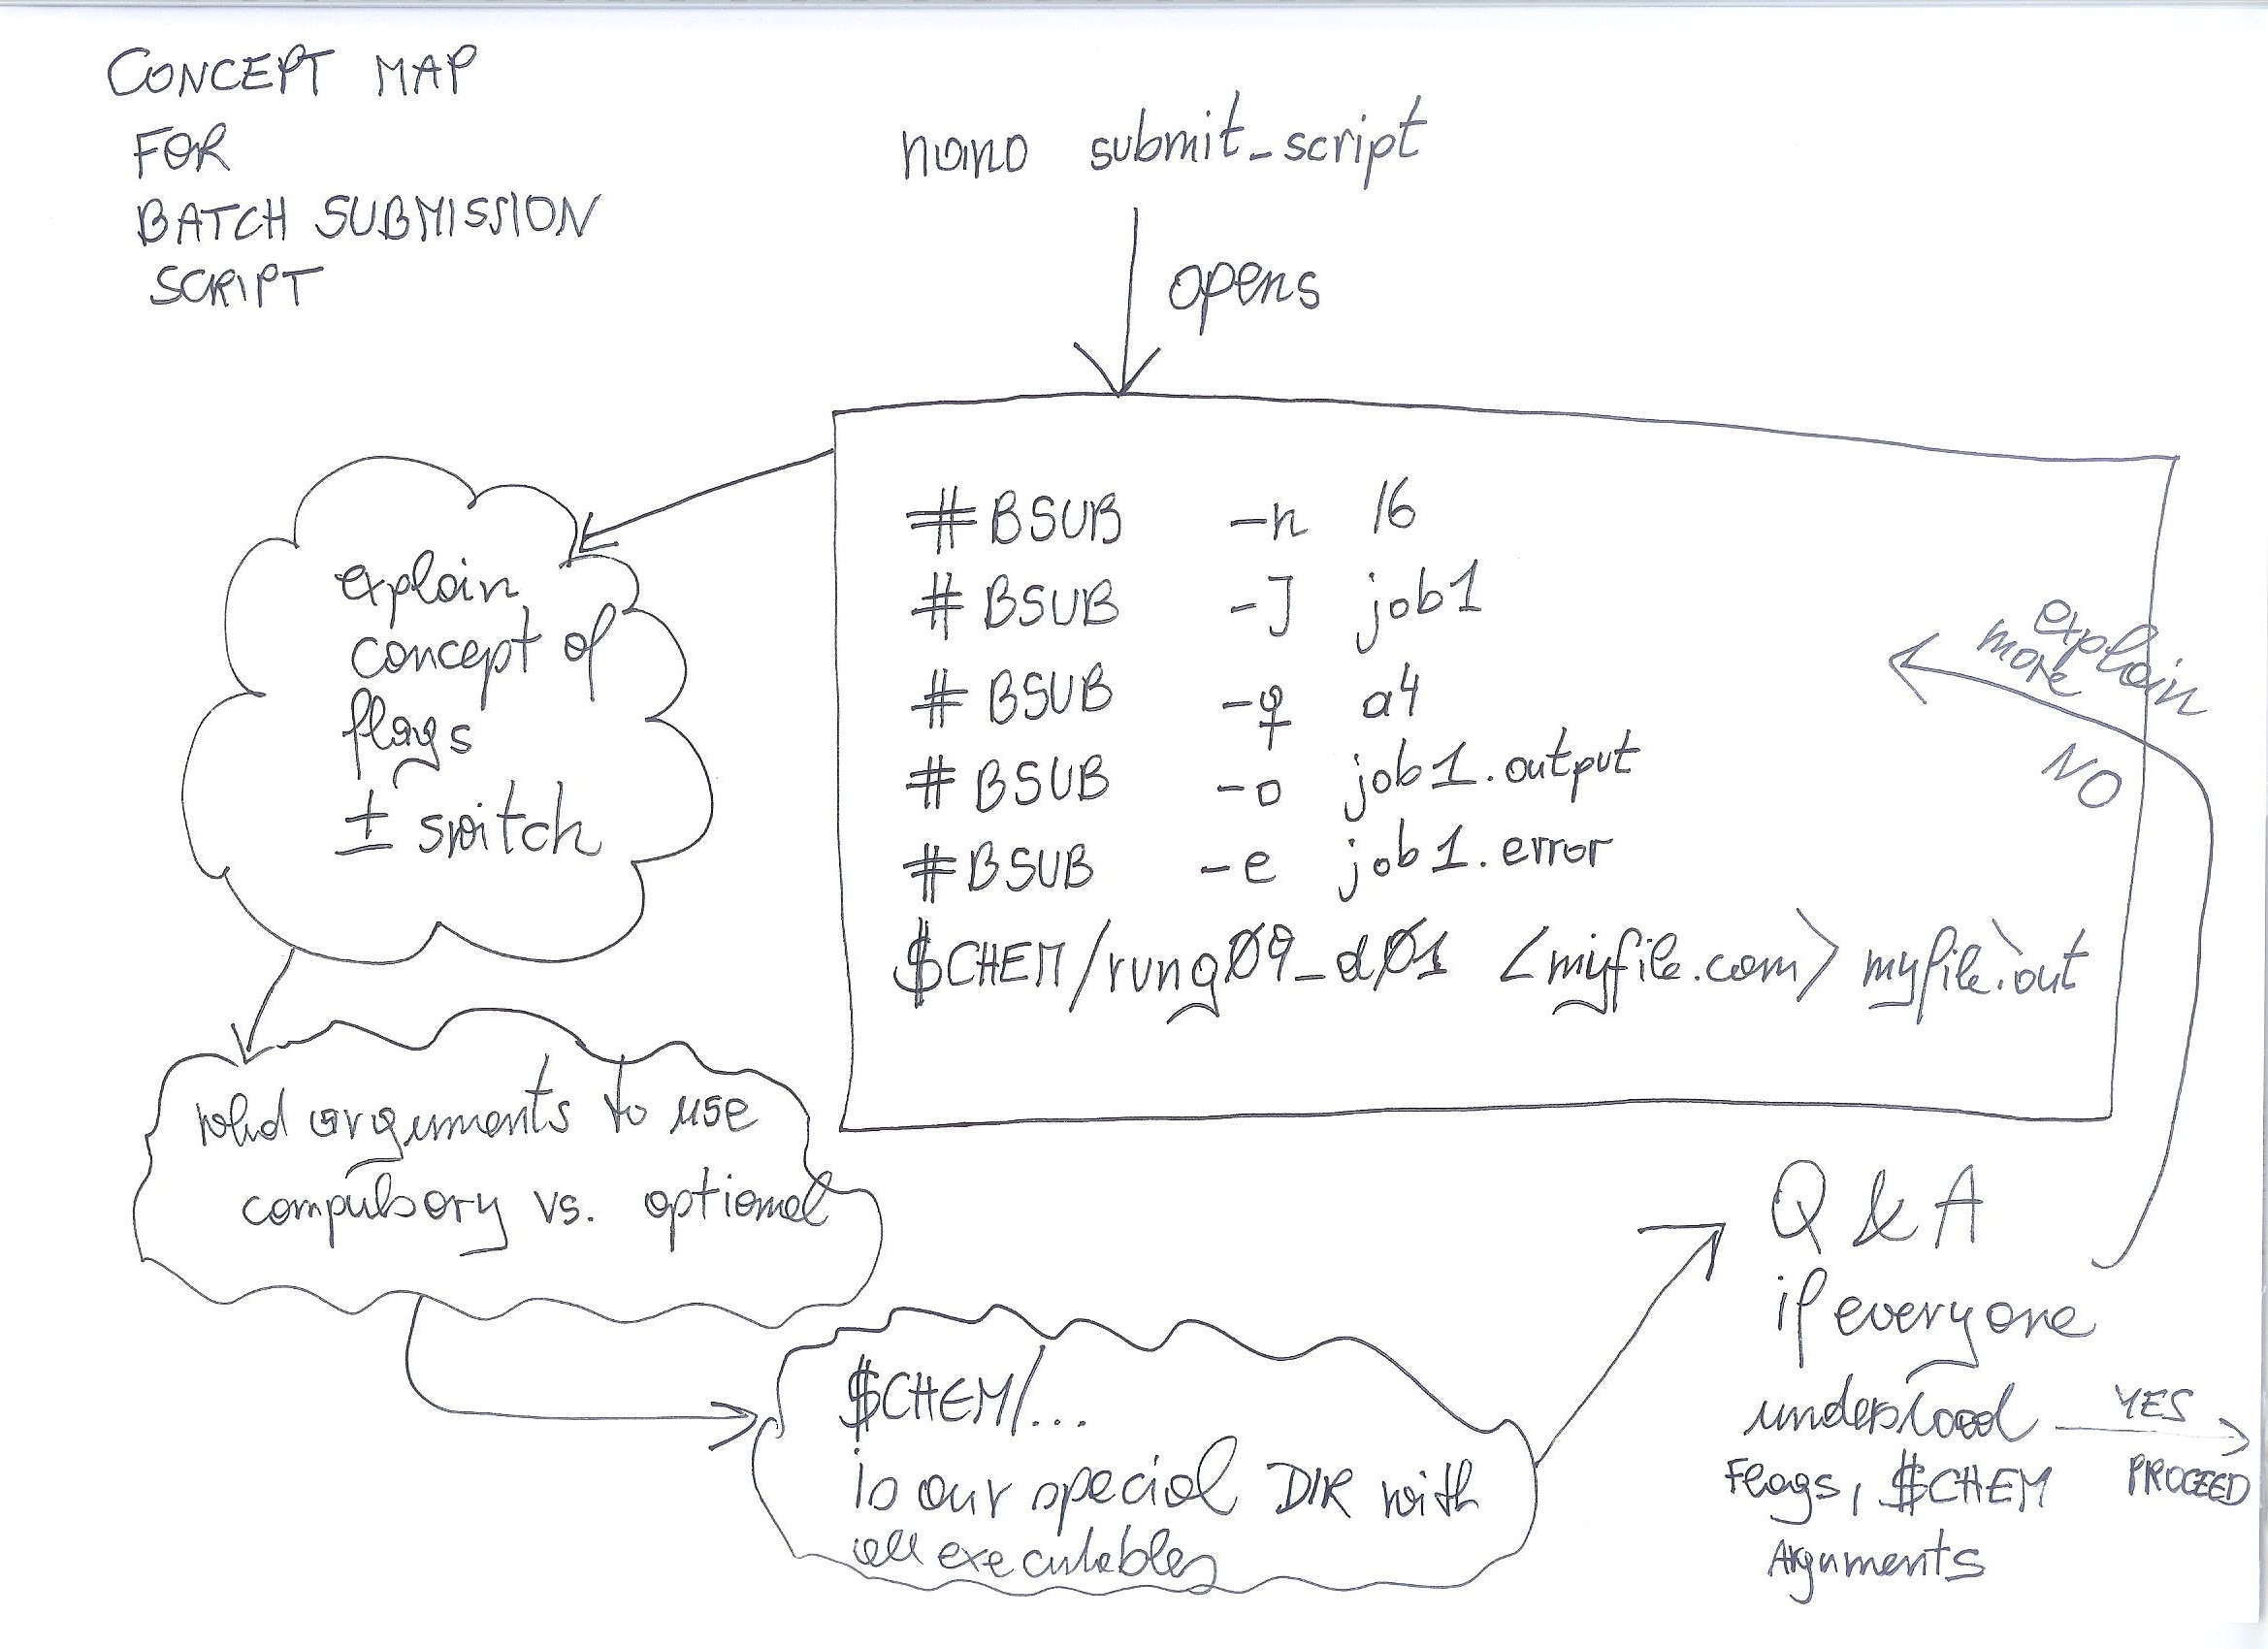 CONCEPT MAP
FOR
BATCH SUBMISSION
SCRIPT
nano submit_script
opens
#BSUB -n 16
#BSUB -J job1
#BSUB -q a4
#BSUB -o job1.output
#BSUB -e job1.error
$CHEM/rung09_d01 <myfile.com> myfile.out
explain
more
NO
explain
concept of
flags
± switch
valid arguments to use
compulsory vs. optional
$CHEM/...
is our special DIR with
all executables
Q & A
if everyone
understood
Flags, $CHEM
Arguments
YES
PROCEED